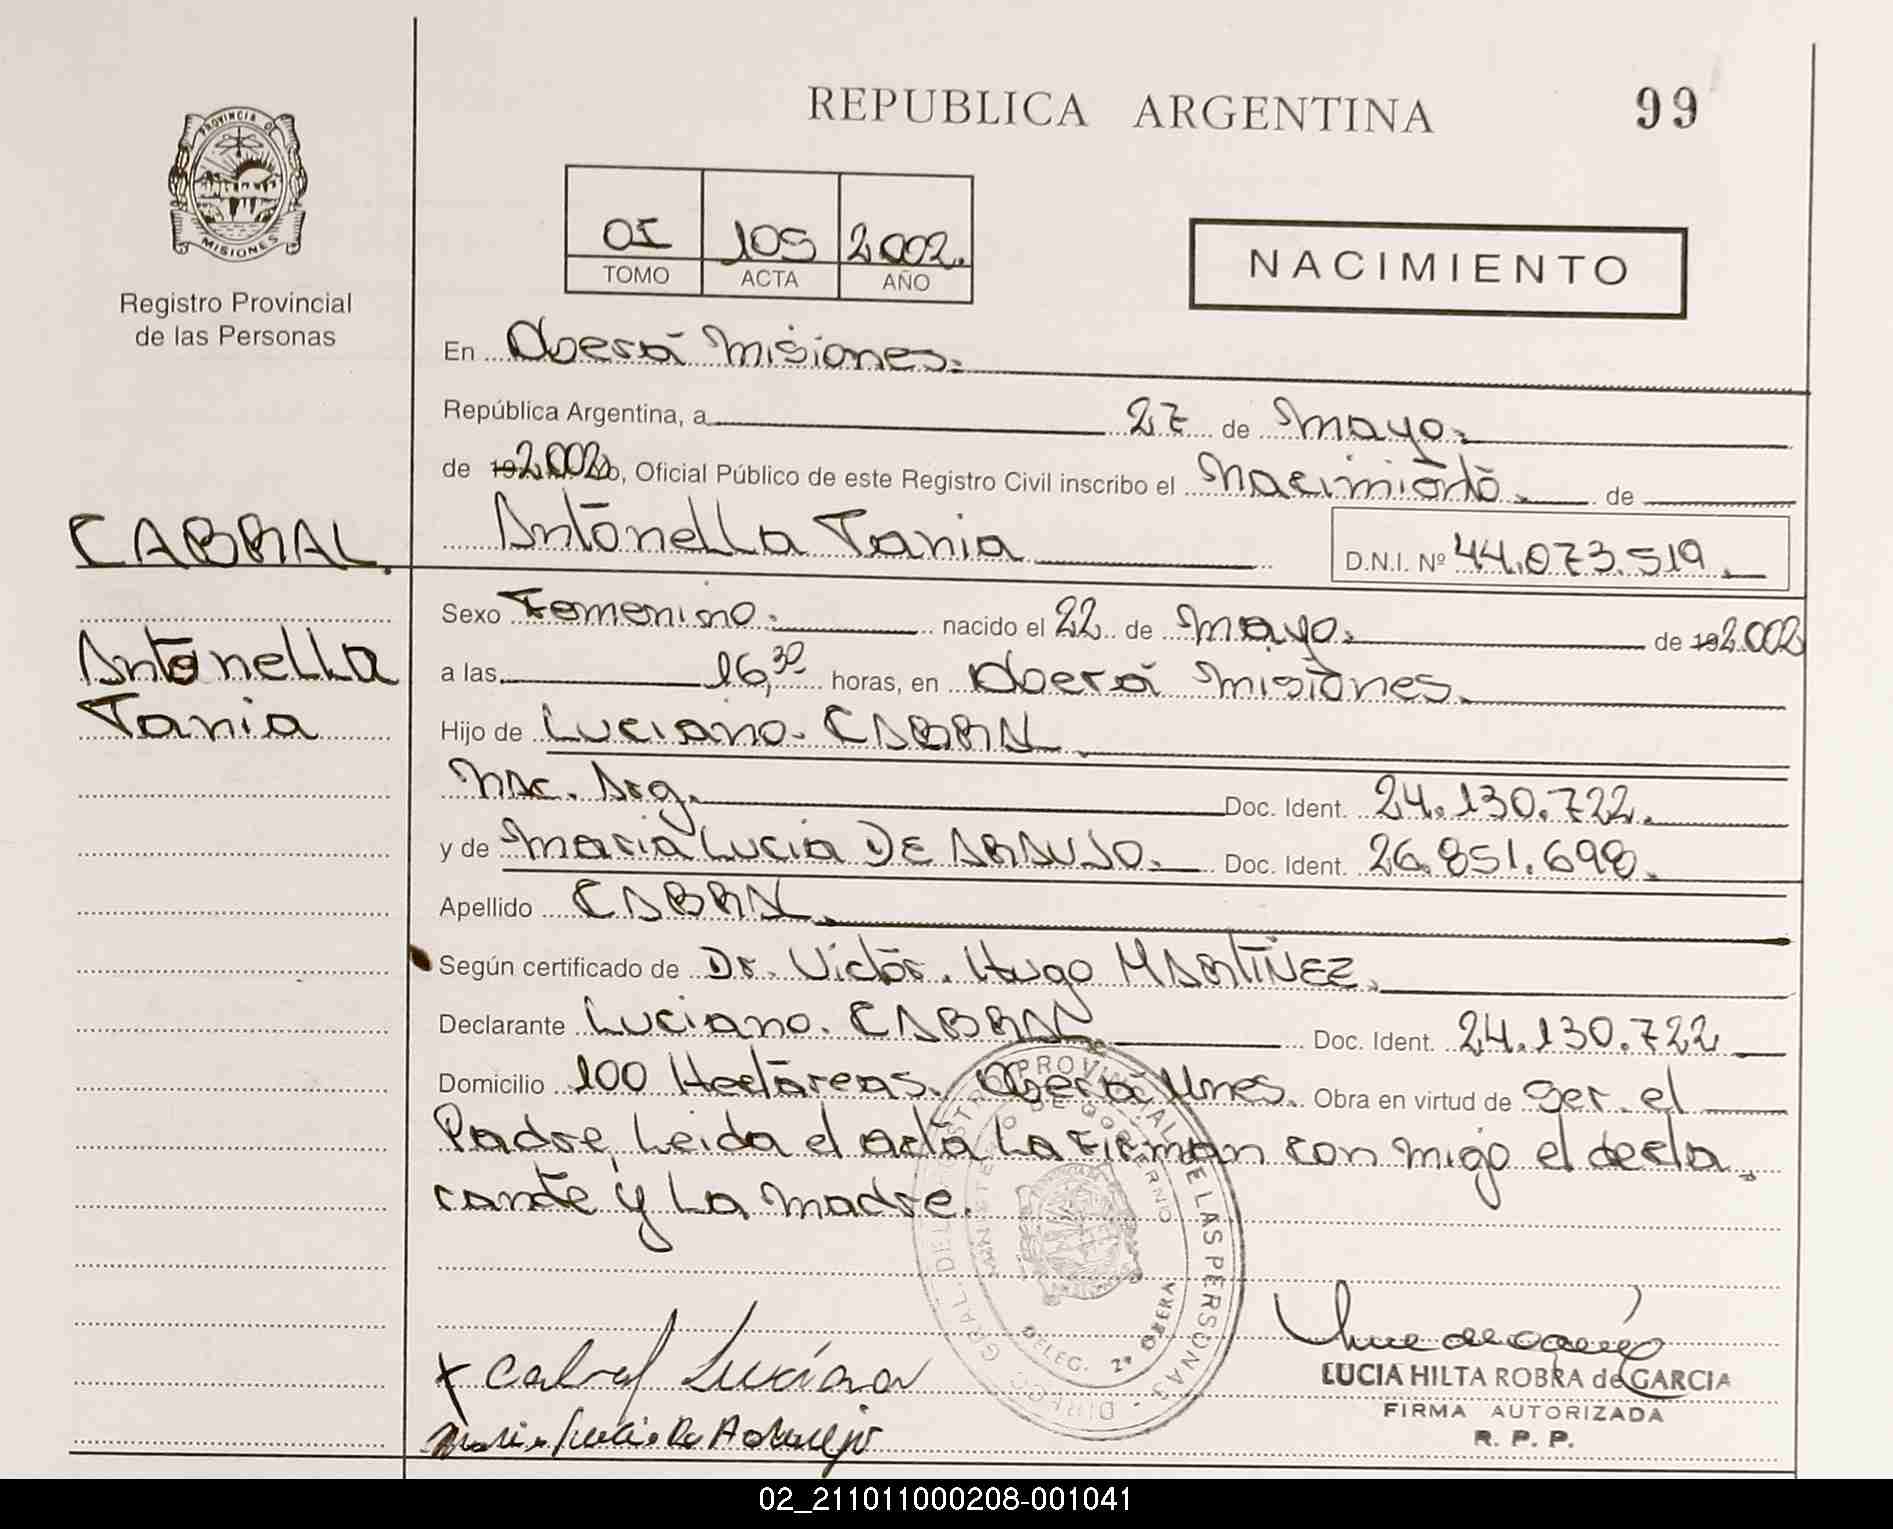 REPUBLICA ARGENTINA
99
PROVINCIA DE
MISIONES
Registro Provincial
de las Personas
OI 105 2002.
TOMO ACTA AÑO
NACIMIENTO
En Oberá Misiones.
República Argentina, a 27 de Mayo.
de 192.002 yo, Oficial Público de este Registro Civil inscribo el Nacimiento. de
CABRAL.
Antonella Tania D.N.I. Nº 44.073.519
Antonella
Tania
Sexo Femenino. nacido el 22 de Mayo. de 192.002
a las 16,30 horas, en Oberá Misiones.
Hijo de Luciano. CABRAL.
Nac. Arg. Doc. Ident. 24.130.722.
y de Maria Lucia DE ARAUJO. Doc. Ident. 26.851.698.
Apellido CABRAL.
Según certificado de Dr. Victor. Hugo MARTINEZ.
Declarante Luciano. CABRAL Doc. Ident. 24.130.722
Domicilio 100 Hectáreas. Oberá Mnes. Obra en virtud de ser. el
Padre, Leida el acta La Firman con migo el decla
rante y La Madre.
DIRECC. GRAL. DEL REGISTRO PROVINCIAL DE LAS PERSONAS
MINISTERIO DE GOBIERNO
DELEG. 2ª OBERA
x Cabral Luciano
Maria Lucia De Araujo
LUCIA HILTA ROBRA de GARCIA
FIRMA AUTORIZADA
R. P. P.
02_211011000208-001041